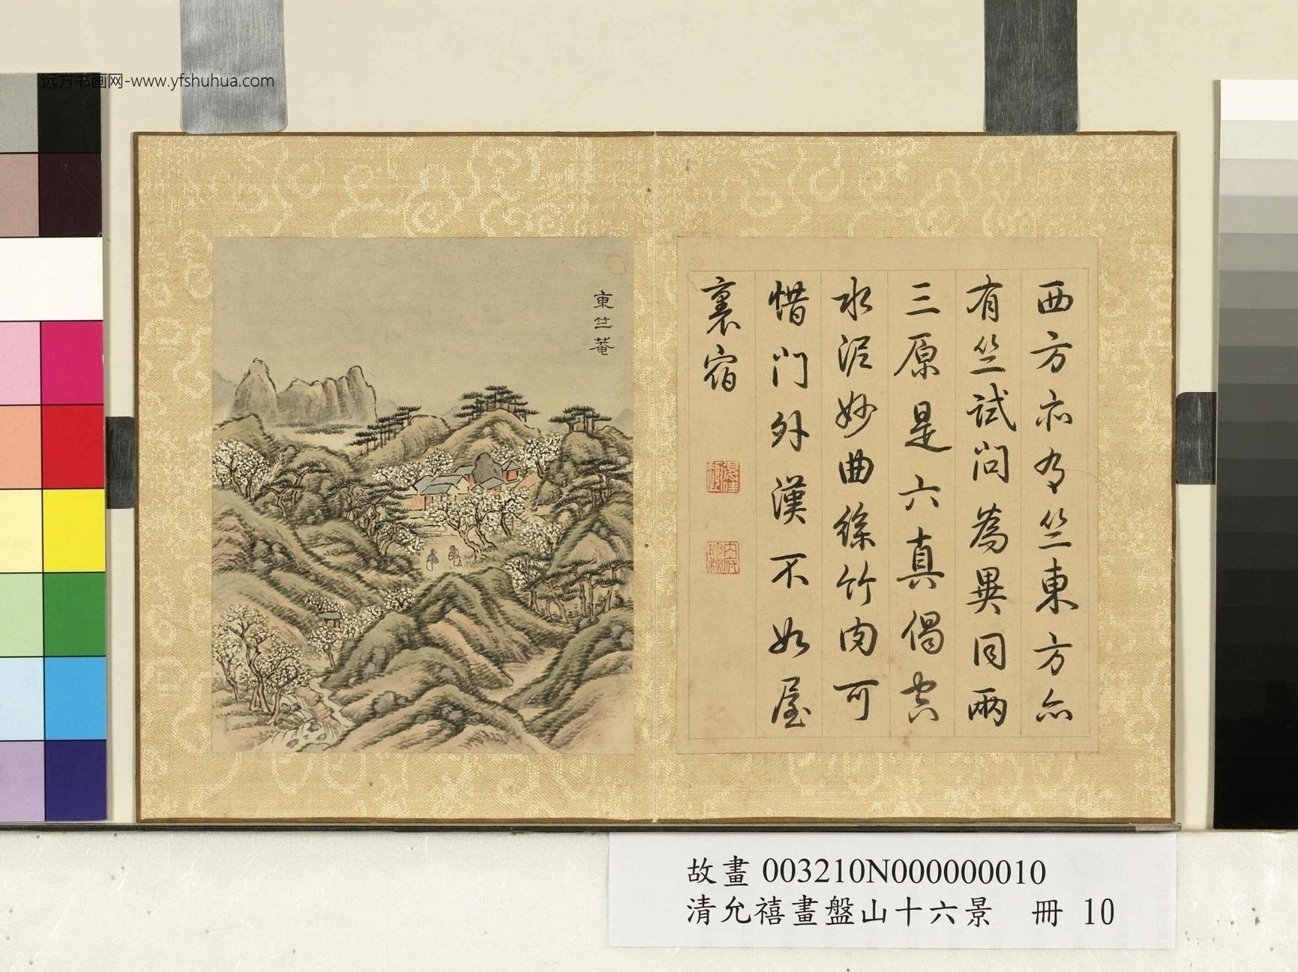 远方书画网-www.yfshuhua.com
東竺菴
西方亦有竺東方亦
有竺試問為異同兩
三原是六真偈空
水泥妙曲絲竹肉可
惜門外漢不如屋
裏宿
故畫 003210N000000010
清允禧畫盤山十六景　冊 10